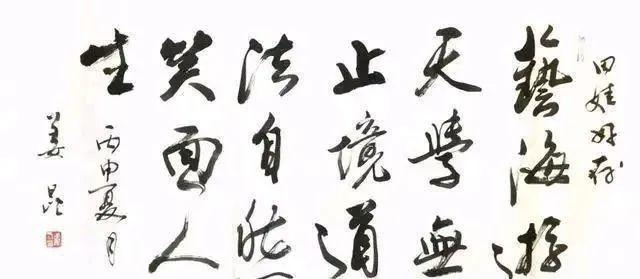 田娃好存
藝海游
天學無
止境道
法自然
笑面人
生
丙申夏月
姜昆